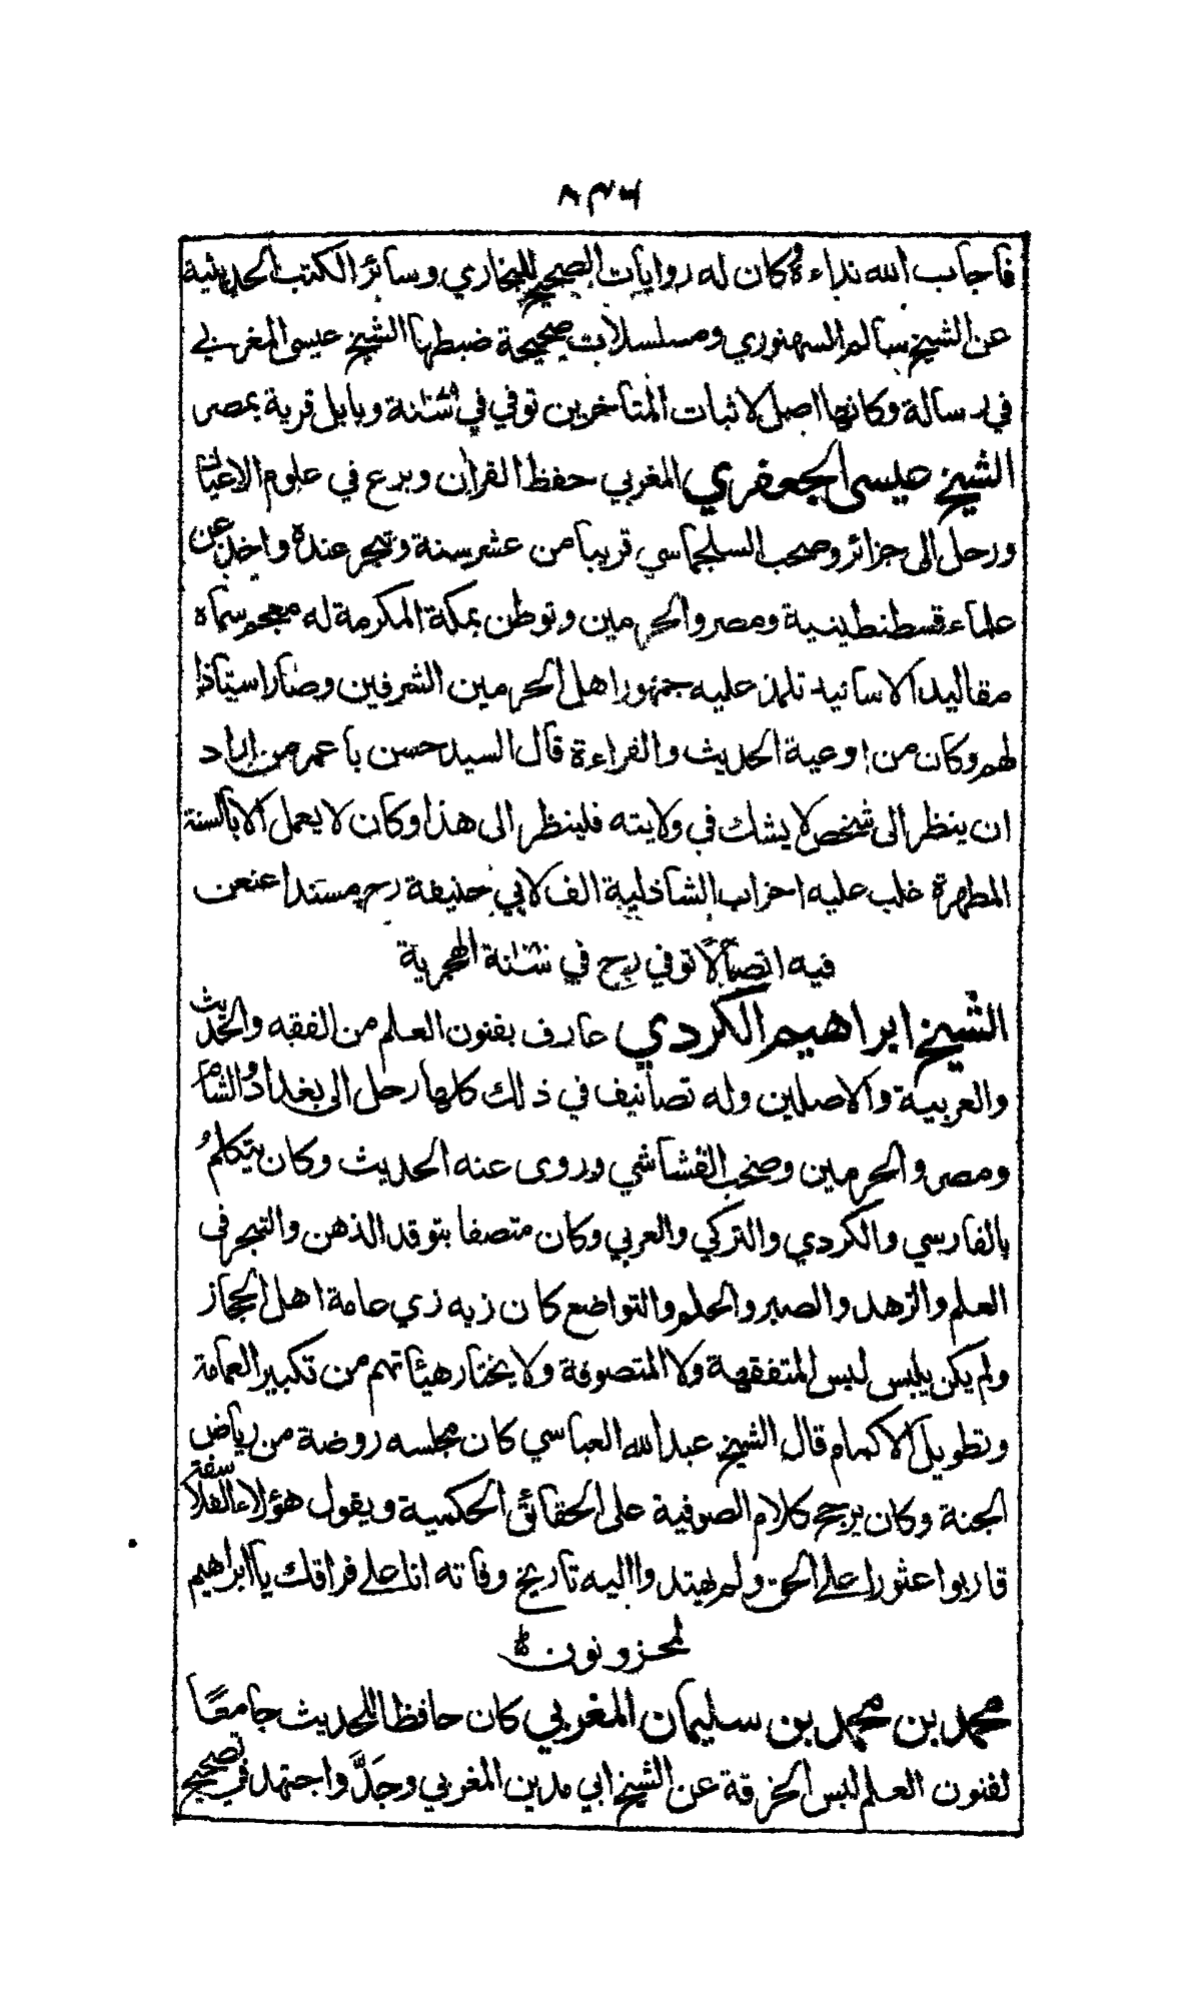 ٨٣٦
فأجاب الله نداءه وكان له روايات الصحيح للبخاري وسائر الكتب الحديثية
عن الشيخ سالم السهنوري ومسلسلات صحيحة ضبطها الشيخ عيسى المغربي
في رسالة وكانها اصل لاثبات المتأخرين توفي في سنة وبابل قرية بمصر
الشيخ عيسى الجعفري المغربي حفظ القرآن وبرع في علوم الاعيان
ورحل الى جزائر وصحب السلجماسي قريبا من عشر سنة وتبحر عنده واخذ عن
علماء قسطنطينية ومصر والحرمين وتوطن بمكة المكرمة له معجم سماه
مقاليد الاسانيد تلمذ عليه جمهور اهل الحرمين الشرفين وصار استاذا
لهم وكان من اوعية الحديث والقراءة قال السيد حسن باعمر من اراد
ان ينظر الى شخص لا يشك في ولايته فلينظر الى هذا وكان لا يعمل الا بالسنة
المطهرة غلب عليه احزاب الشاذلية الف لابي حنيفة رح مسندا عنعن
فيه اتصالا توفي رح في سنة الهجرية
الشيخ ابراهيم الكردي عارف بفنون العلم من الفقه والحديث
والعربية والاصلين وله تصانيف في ذلك كلها رحل الى بغداد والشام
ومصر والحرمين وصحب القشاشي وروى عنه الحديث وكان يتكلم
بالفارسي والكردي والتركي والعربي وكان متصفا بتوقد الذهن والتبحر في
العلم والزهد والصبر والحلم والتواضع كان زيه زي عامة اهل الحجاز
ولم يكن يلبس لبس المتفقهة ولا المتصوفة ولا يختار هيئاتهم من تكبير العمامة
وتطويل الاكمام قال الشيخ عبد الله العباسي كان مجلسه روضة من رياض
الجنة وكان يرجح كلام الصوفية على الحقائق الحكمية ويقول هؤلاء الفلاسفة
قاربوا عثورا على الحق ولم يهتدوا اليه تاريخ وفاته انا على فراقك يا ابراهيم
لمحزونون
محمد بن محمد بن سليمان المغربي كان حافظا للحديث جامعًا
لفنون العلم لبس الخرقة عن الشيخ ابي مدين المغربي وجَدَّ واجتهد في تصحيح